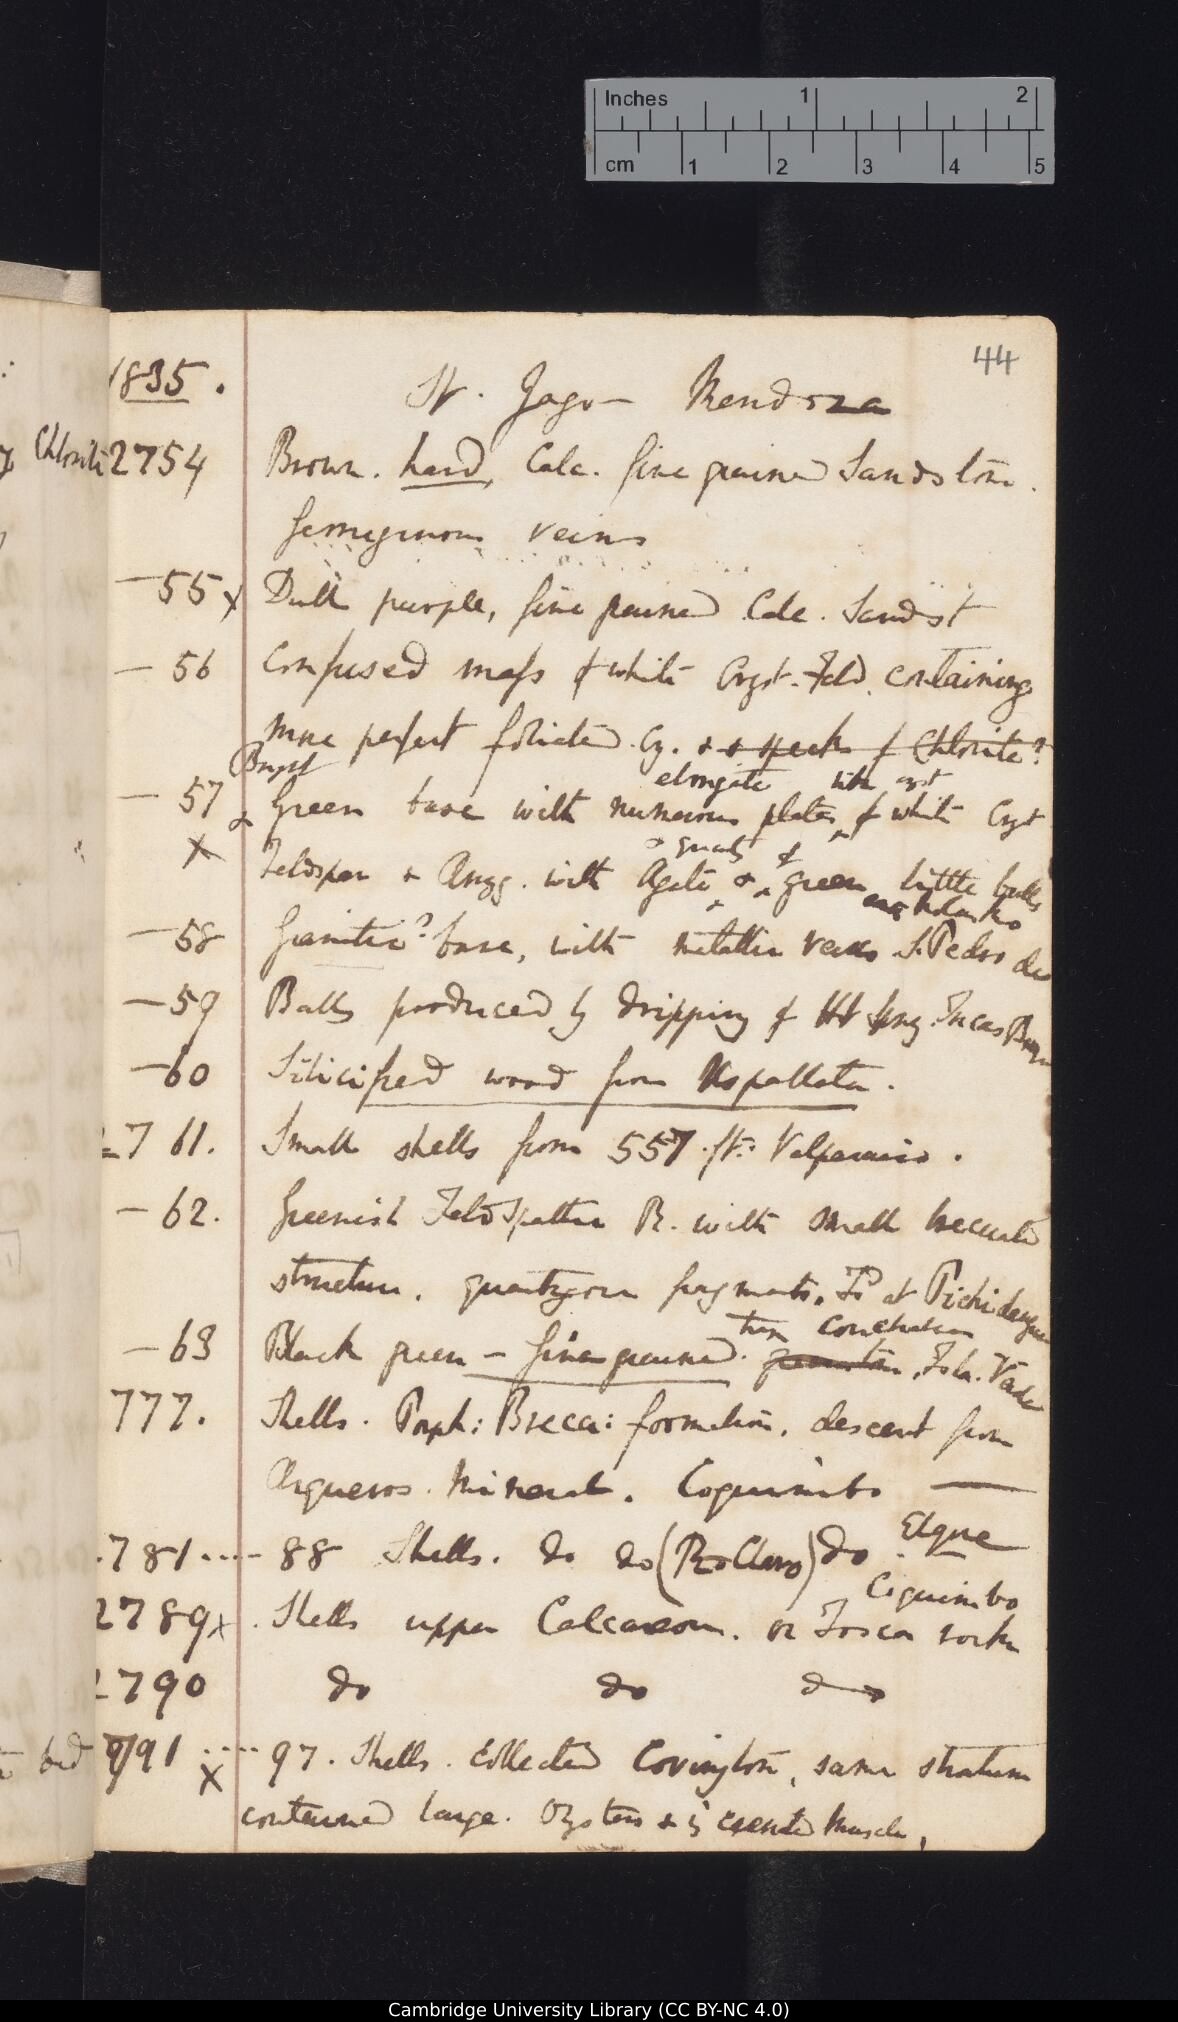 Inches 1 2
cm 1 2 3 4 5
44
1835.
St. Jago — Mendoza
Chlorite
2754 Brown. hard, Calc. fine grained Sandstone.
ferruginous veins
— 55 x Dull purple, fine grained Calc. Sandst
— 56 Confused mass of white Cryst. Feld. containing
more perfect foliated Cry. + + specks of Chlorite?
elongate with cryst
— 57 Green base with numerous plates of white Cryst
+ quartz of
x Feldspar + Amyg. with Agate + green little balls
— 58 Granitic? base, with metallic veins S. Pedro de
— 59 Balls produced by dripping of Hot spring. Incas Bridge
— 60 Silicified wood from Uspallata.
2761. Small shells from 557 ft: Valparaiso.
— 62. Greenish Feldspathic R. with small brecciated
structure. quartzose fragments. Do at Pichidangue
conchidium
— 63 Black green — fine grained.
777. Shells. Porph: Brecc: formation. descent from
Arqueros. Mineral. Coquimbo —
Elque
.781 .... — 88 Shells. do do (Rio Claro) do
Coquimbo
2789 x. Shells upper Calcareous. or Tosca rock
2790 do do do
bed 2791 .... 97. Shells. Collected Covington, same stratum
x
contained large. Oysters + Muscle,
Cambridge University Library (CC BY-NC 4.0)